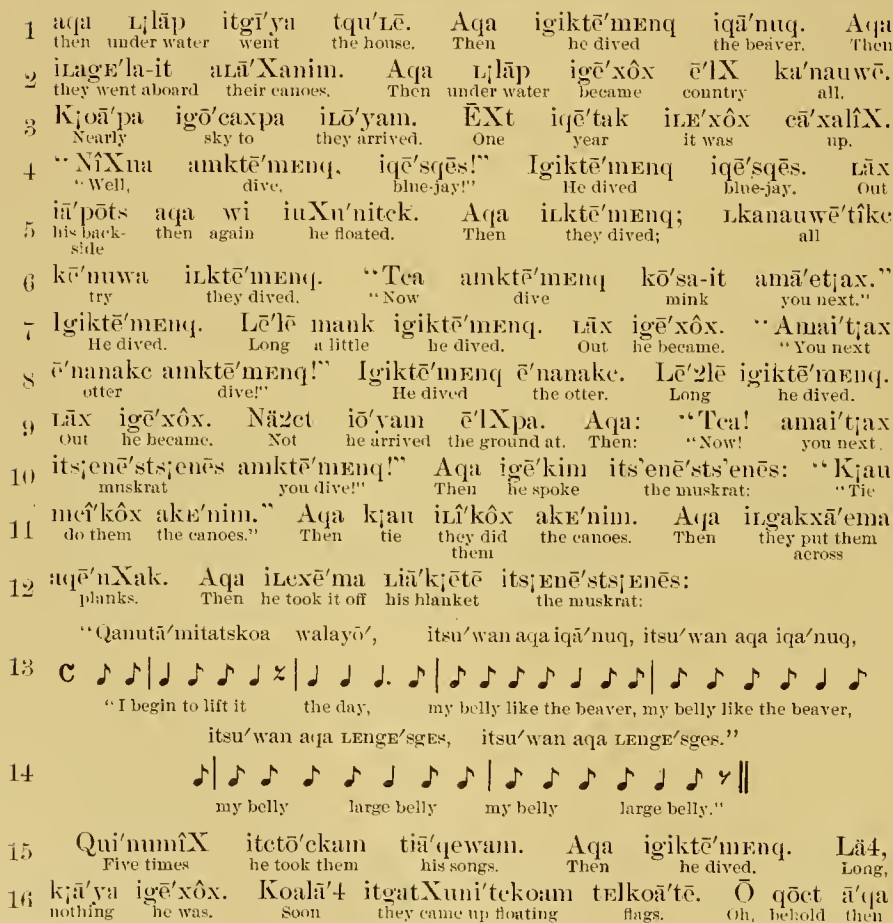 1 aqa ʟ¡lāp itgī′ya tqu′ʟē. Aqa igiktē′mᴇnq iqā′nuq. Aqa
then under water went the house. Then he dived the beaver. Then
2 iʟagᴇ′la-it aʟā′Xanim. Aqa ʟ¡lāp igē′xôx ē′lX ka′nauwē.
they went aboard their canoes. Then under water became country all.
3 K¡oā′pa igō′caxpa iʟō′yam. ĒXt iqē′tak iʟᴇ′xôx cā′xalîX.
Nearly sky to they arrived. One year it was up.
4 “NîXna amktē′mᴇnq, iqē′sqēs!” Igiktē′mᴇnq iqē′sqēs. ʟāx
“Well, dive, blue-jay!” He dived blue-jay. Out
5 iā′pōts aqa wi iuXu′nitck. Aqa iʟktē′mᴇnq; ʟkanauwē′tîkc
his back- then again he floated. Then they dived; all
side
6 kē′nuwa iʟktē′mᴇnq. “Tca amktē′mᴇnq kō′sa-it amā′et¡ax.”
try they dived. “Now dive mink you next.”
7 Igiktē′mᴇnq. Lē′lē mank igiktē′mᴇnq. ʟāx igē′xôx. “Amai′t¡ax
He dived. Long a little he dived. Out he became. “You next
8 ē′nanakc amktē′mᴇnq!” Igiktē′mᴇnq ē′nanakc. Lē′2lē igiktē′mᴇnq.
otter dive!” He dived the otter. Long he dived.
9 ʟāx igē′xôx. Nä2ct iō′yam ē′lXpa. Aqa: “Tca! amai′t¡ax
Out he became. Not he arrived the ground at. Then: “Now! you next
10 its¡enē′sts¡enēs amktē′mᴇnq!” Aqa igē′kim its'enē′sts'enēs: “K¡au
muskrat you dive!” Then he spoke the muskrat: “Tie
11 mcî′kôx akᴇ′nim.” Aqa k¡au iʟî′kôx akᴇ′nim. Aqa iʟgakxā′ema
do them the canoes.” Then tie they did the canoes. Then they put them
them across
12 aqē′nXak. Aqa iʟexē′ma ʟiā′k¡ētē its¡ᴇnē′sts¡ᴇnēs:
planks. Then he took it off his blanket the muskrat:
“Qanutā′mitatskoa walayō′, itsu′wan aqa iqā′nuq, itsu′wan aqa iqa′nuq,
13
“I begin to lift it the day, my belly like the beaver, my belly like the beaver,
itsu′wan aqa ʟᴇngᴇ′sgᴇs, itsu′wan aqa ʟᴇngᴇ′sges.”
14
my belly large belly my belly large belly.”
15 Qui′numîX itctō′ckam tiā′qewam. Aqa igiktē′mᴇnq. Lä4,
Five times he took them his songs. Then he dived. Long,
16 k¡ā′ya igē′xôx. Koalā′4 itgatXuni′tckoam tᴇlkoā′tē. Ō qōct ā′qa
nothing he was. Soon they came up floating flags. Oh, behold then